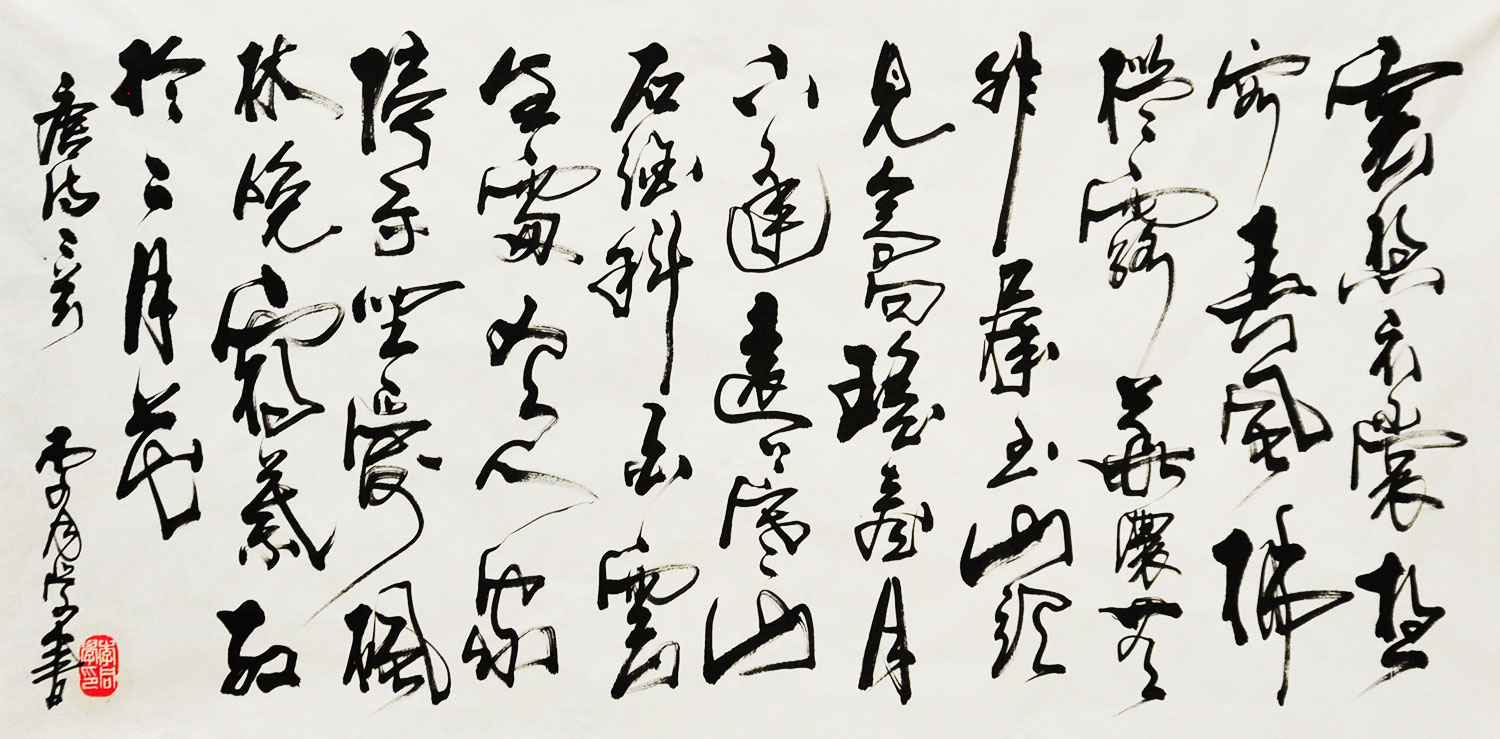 雲想衣裳想
容春風拂
檻露華濃若
非群玉山頭
見會向瑤臺月
下逢遠上寒山
石徑斜白雲
生處有人家
停車坐愛楓
林晚霜葉紅
於二月花
唐詩二首 李同學書
李同學印